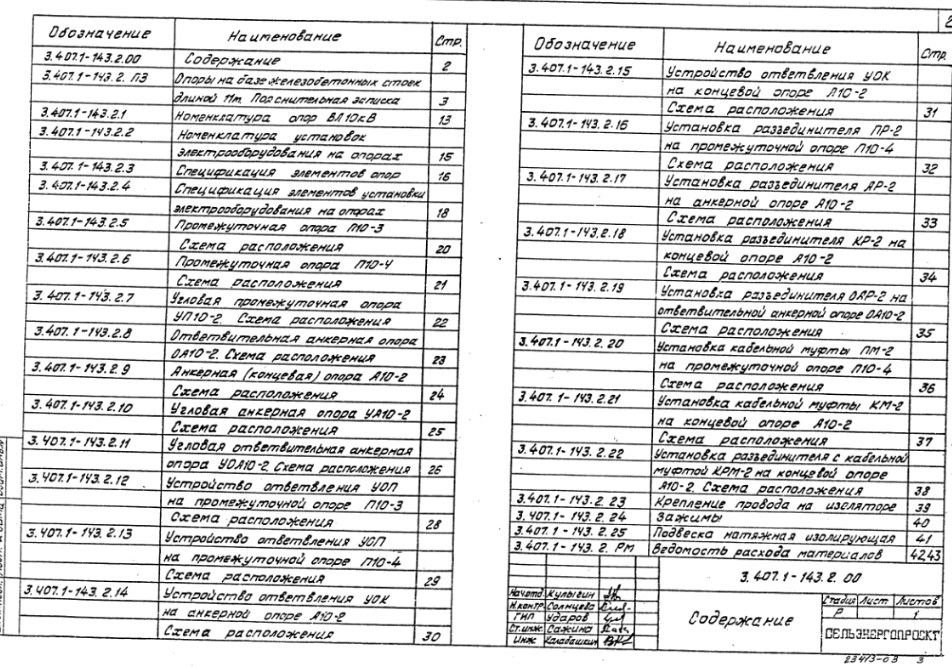 2
Обозначение Наименование Стр.
3.407.1-143.2.00 Содержание 2
3.407.1-143.2.ПЗ Опоры на базе железобетонных стоек
длиной 11м. Пояснительная записка 3
3.407.1-143.2.1 Номенклатура опор ВЛ 10кВ 13
3.407.1-143.2.2 Номенклатура установок
электрооборудования на опорах 15
3.407.1-143.2.3 Спецификация элементов опор 16
3.407.1-143.2.4 Спецификация элементов установки
электрооборудования на опорах 18
3.407.1-143.2.5 Промежуточная опора П10-3
Схема расположения 20
3.407.1-143.2.6 Промежуточная опора П10-4
Схема расположения 21
3.407.1-143.2.7 Угловая промежуточная опора
УП10-2. Схема расположения 22
3.407.1-143.2.8 Ответвительная анкерная опора
ОА10-2. Схема расположения 23
3.407.1-143.2.9 Анкерная (концевая) опора А10-2
Схема расположения 24
3.407.1-143.2.10 Угловая анкерная опора УА10-2
Схема расположения 25
3.407.1-143.2.11 Угловая ответвительная анкерная
опора УОА10-2 Схема расположения 26
3.407.1-143.2.12 Устройство ответвления УОП
на промежуточной опоре П10-3
Схема расположения 28
3.407.1-143.2.13 Устройство ответвления УОП
на промежуточной опоре П10-4
Схема расположения 29
3.407.1-143.2.14 Устройство ответвления УОК
на анкерной опоре А10-2
Схема расположения 30
Обозначение Наименование Стр.
3.407.1-143.2.15 Устройство ответвления УОК
на концевой опоре А10-2
Схема расположения 31
3.407.1-143.2.16 Установка разъединителя ПР-2
на промежуточной опоре П10-4
Схема расположения 32
3.407.1-143.2.17 Установка разъединителя АР-2
на анкерной опоре А10-2
Схема расположения 33
3.407.1-143.2.18 Установка разъединителя КР-2 на
концевой опоре А10-2
Схема расположения 34
3.407.1-143.2.19 Установка разъединителя ОАР-2 на
ответвительной анкерной опоре ОА10-2
Схема расположения 35
3.407.1-143.2.20 Установка кабельной муфты ПМ-2
на промежуточной опоре П10-4
Схема расположения 36
3.407.1-143.2.21 Установка кабельной муфты КМ-2
на концевой опоре А10-2
Схема расположения 37
3.407.1-143.2.22 Установка разъединителя с кабельной
муфтой КРМ-2 на концевой опоре
А10-2. Схема расположения 38
3.407.1-143.2.23 Крепление провода на изоляторе 39
3.407.1-143.2.24 Зажимы 40
3.407.1-143.2.25 Подвеска натяжная изолирующая 41
3.407.1-143.2.РМ Ведомость расхода материалов 42,43
3.407.1-143.2.00
Нач.отд Кулыгин
Н.контр. Солнцева
ГИП Ударов
Ст.инж. Сажина
Инж.
Содержание
Стадия Лист Листов
Р 1
СЕЛЬЭНЕРГОПРОЕКТ
23413-03 3